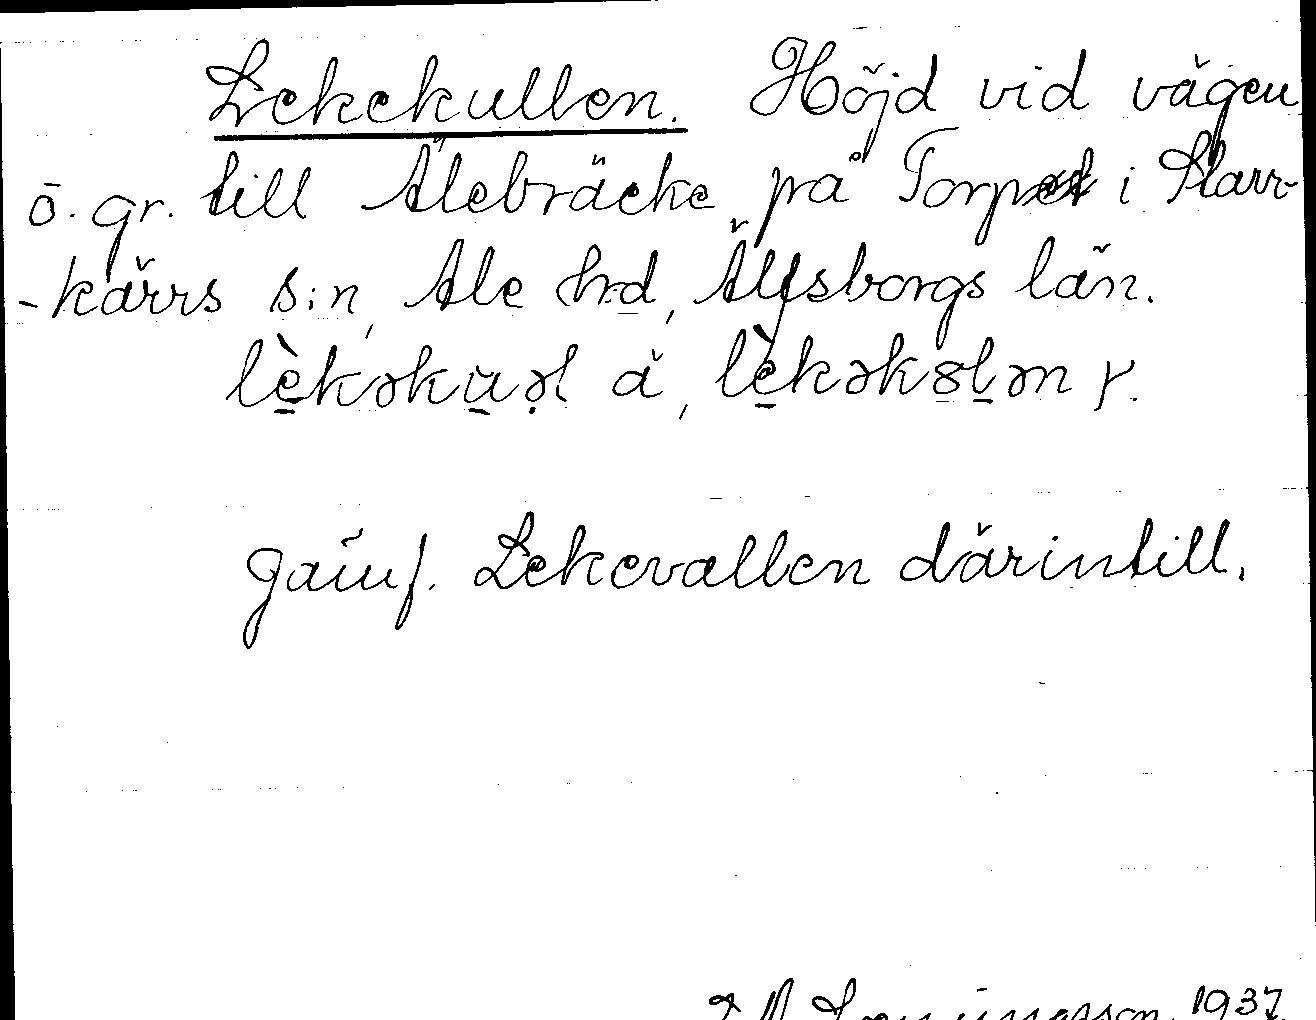 Lekekullen. Höjd vid vägen
ö. gr. till Älebräcke på Torpet i Starr-
-kärrs s:n, Ale hd, Älfsborgs län.
lèkəkuəl ä, lèkəkələn r.
Jämf. Lekevallen därintill.
1937